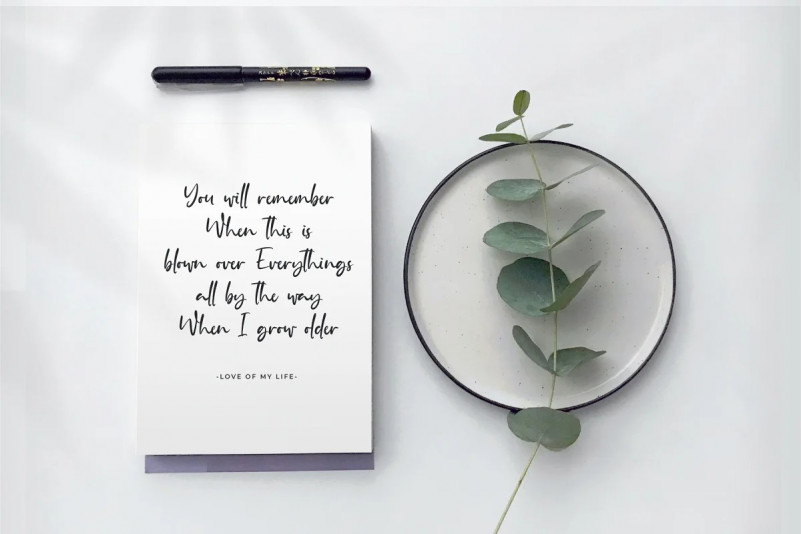 You will remember
When this is
blown over Everythings
all by the way
When I grow older
-LOVE OF MY LIFE-